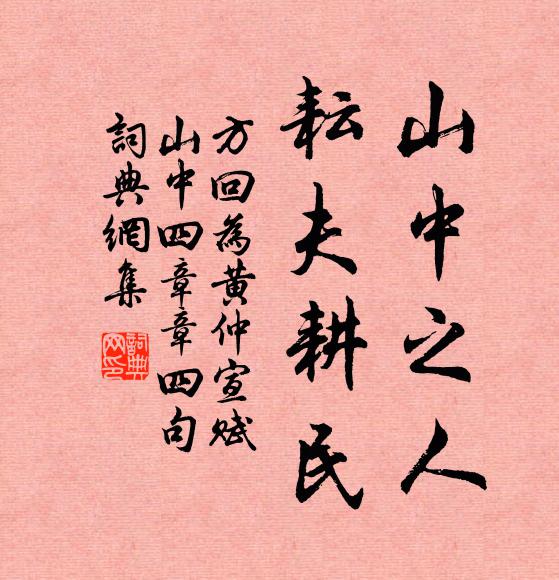 山中之人
耘夫耕民
方回為黃仲宣賦
山中四章章四句
詞典網集
詞典网印